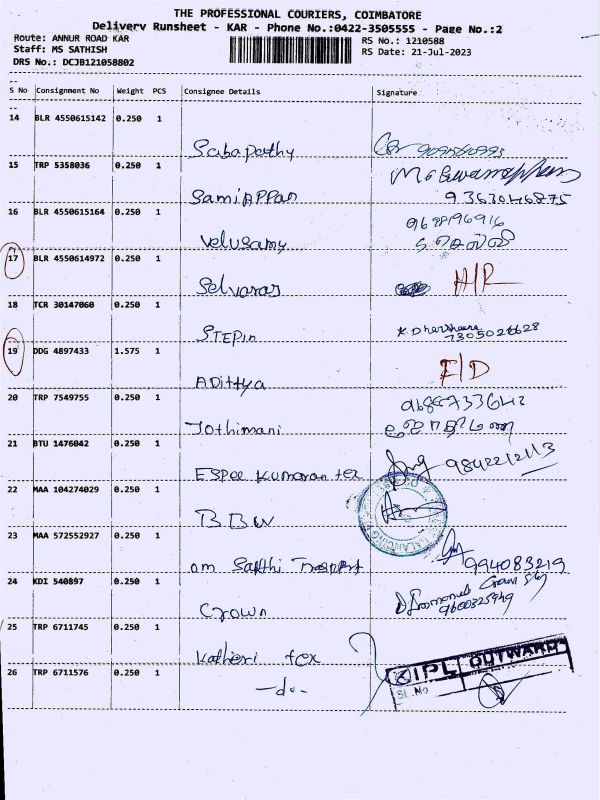 THE PROFESSIONAL COURIERS, COIMBATORE
Delivery Runsheet - KAR - Phone No.:0422-3505555 - Page No.:2
Route: ANNUR ROAD KAR
RS No.: 1210588
Staff: MS SATHISH
RS Date: 21-Jul-2023
DRS No.: DCJB121058802
S No Consignment No Weight PCS Consignee Details Signature
14 BLR 4550615142 0.250 1
Sabapathy
15 TRP 5358036 0.250 1
SamiAPPan 9363046875
16 BLR 4550615164 0.250 1
Velusamy
17 BLR 4550614972 0.250 1
Selvaraj H/R
18 TCR 30147060 0.250 1
STEPin 7305026628
19 DDG 4897433 1.575 1
ADittya E/D
20 TRP 7549755 0.250 1
Jothimani
21 BTU 1476042 0.250 1
ESPee Kumaran tex
22 MAA 104274029 0.250 1
BBW
23 MAA 572552927 0.250 1
om Sakthi 994083219
24 KDI 540897 0.250 1
Crown 9600325949
25 TRP 6711745 0.250 1
tex
IPL OUTWARD
26 TRP 6711576 0.250 1
—do—
SL No